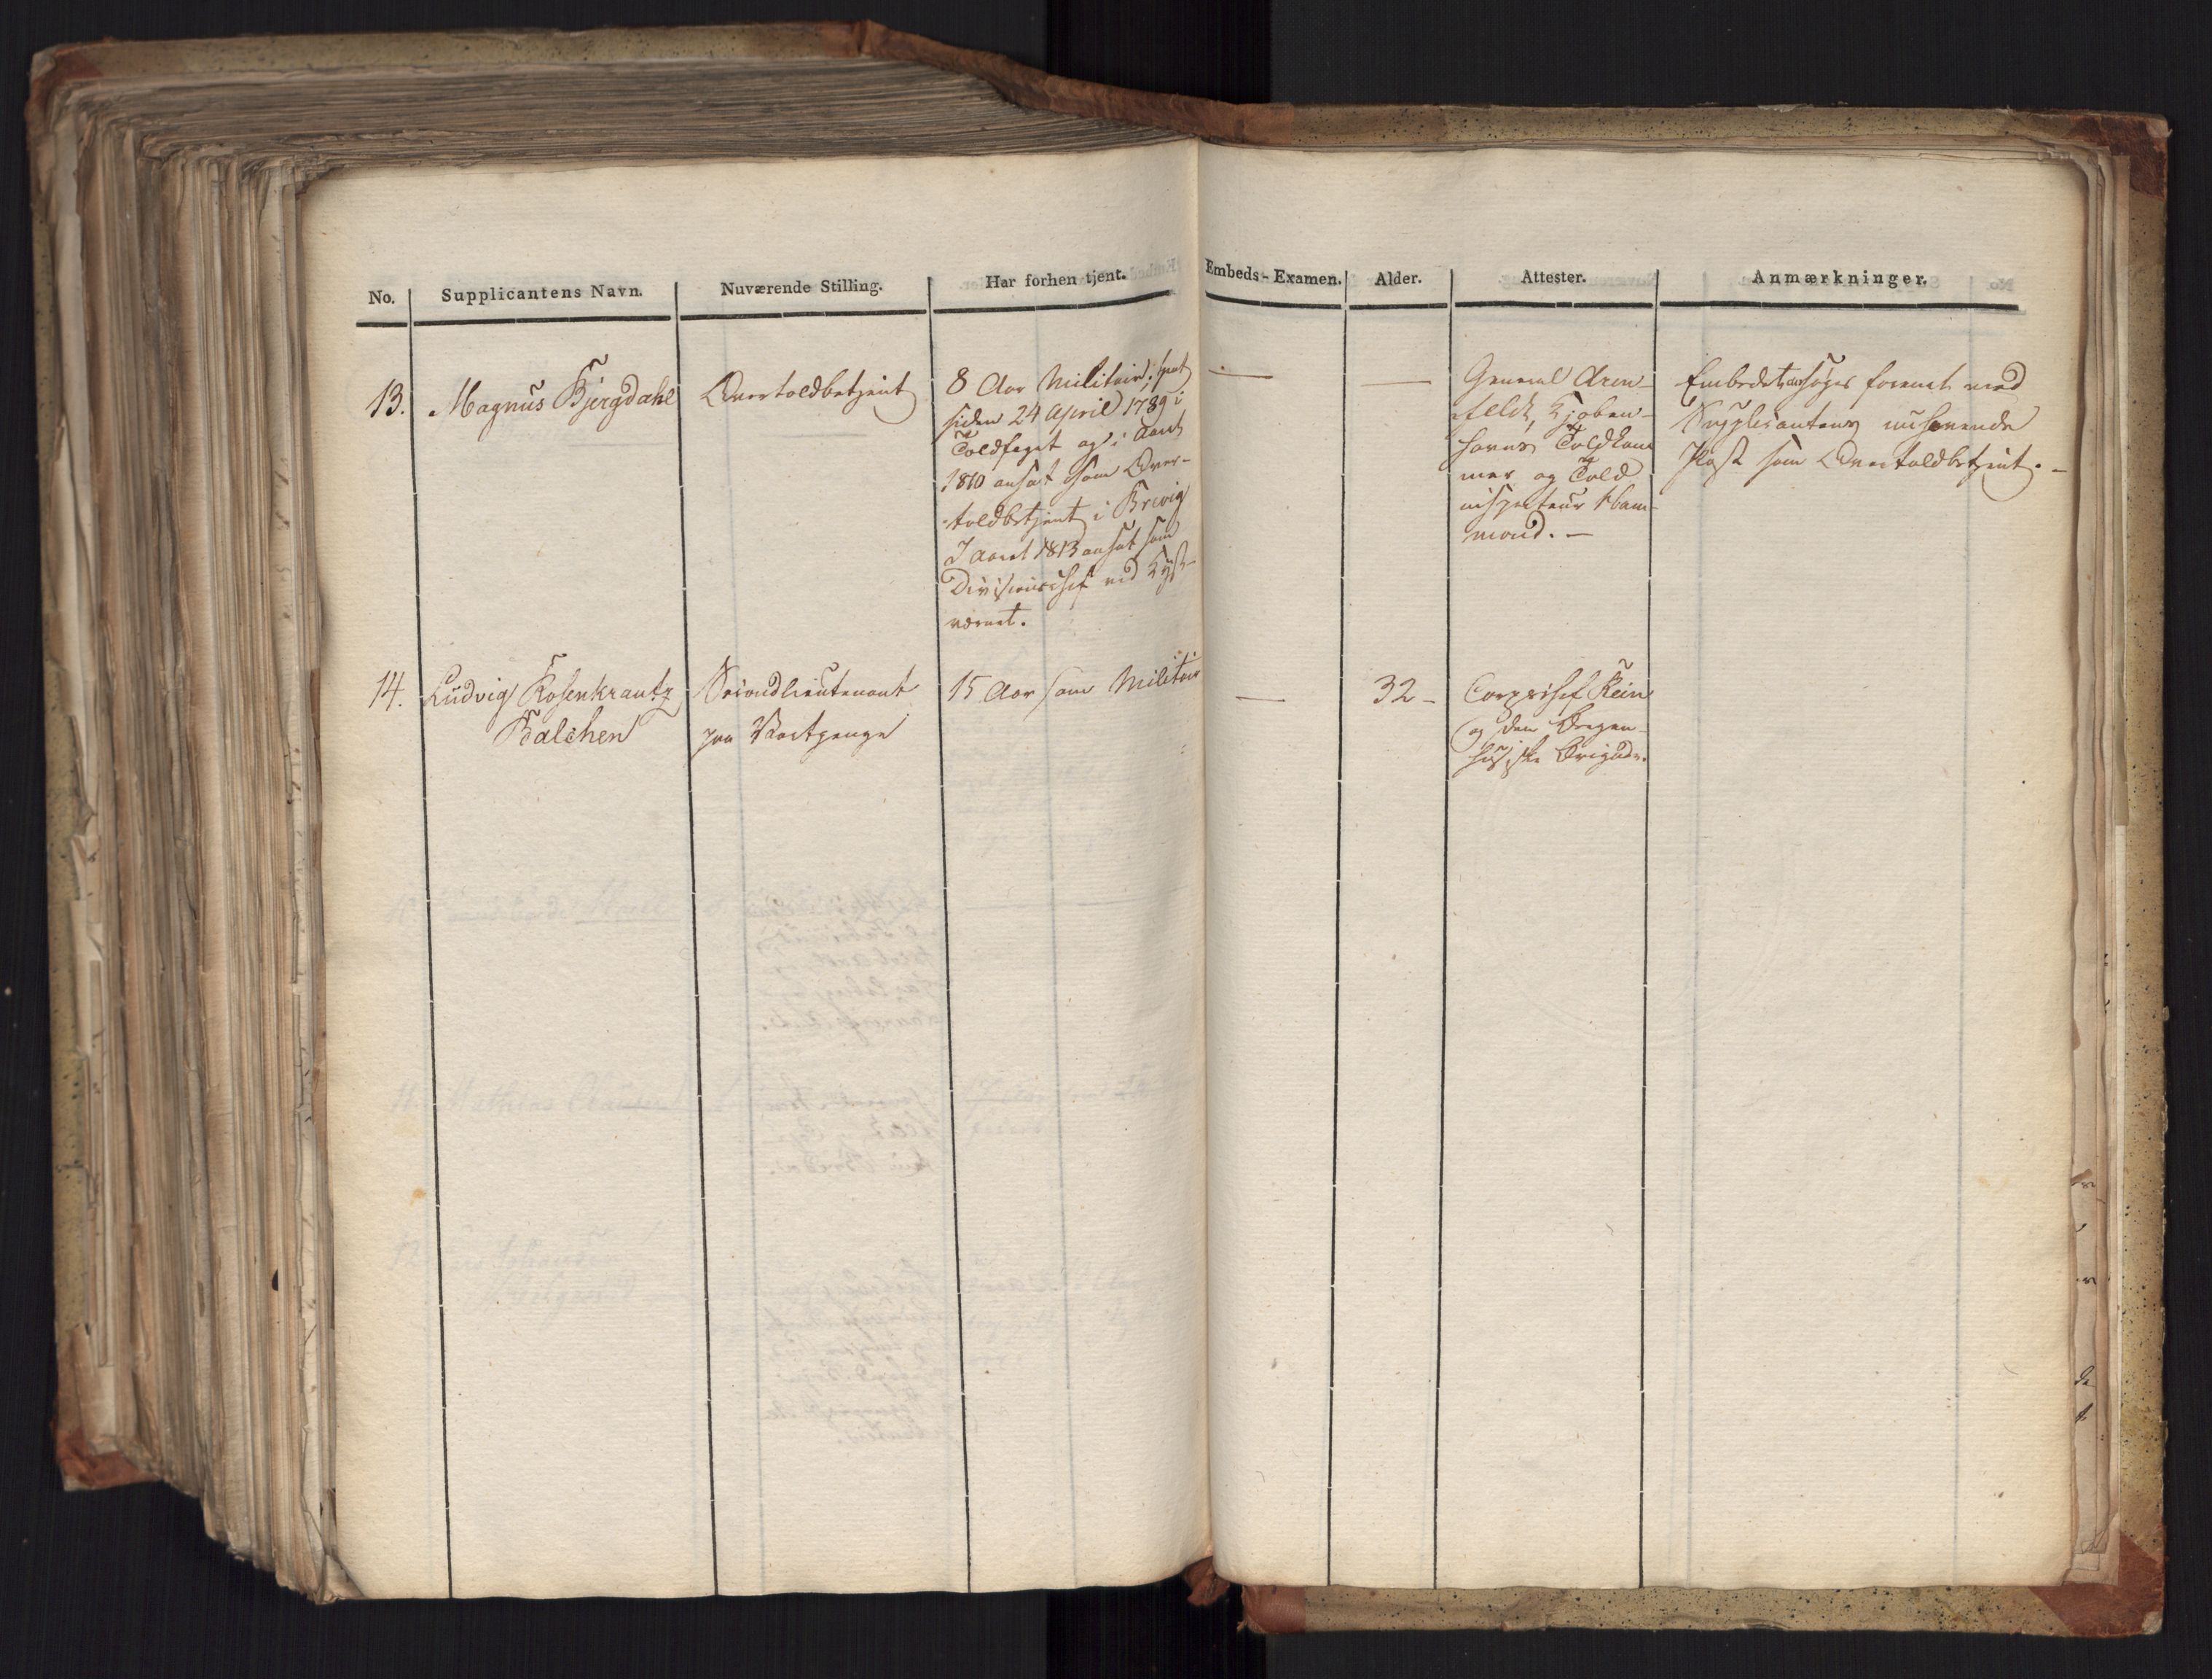 No. Supplicantens Navn. Nuværende Stilling. Har forhen tjent. Embeds-Examen. Alder. Attester. Anmærkninger.
13.
Magnus Bjergdahl
Overtoldbetjent
8 Aar Militair, samt
siden 24 April 1789 i
Toldfaget og i Aaret
1810 ansat som Over-
toldbetjent i Brevig
I Aaret 1813 ansat som
Divisionschef ved Kyst-
værnet.
—
—
General Aren-
feldt, Kjøben-
havns Toldkam
mer og Told
inspecteur Ham-
mond. —
Embedet ansøges forenet med
Supplicantens nuhavende
Post som Overtoldbetjent. —
14.
Ludvig Rosenkrantz
Balchen
Secondlieutenant
paa Vartpenge
15 Aar som Militair
—
32 -
Corpschef Rein
og den Bergen-
husiske Brigade.